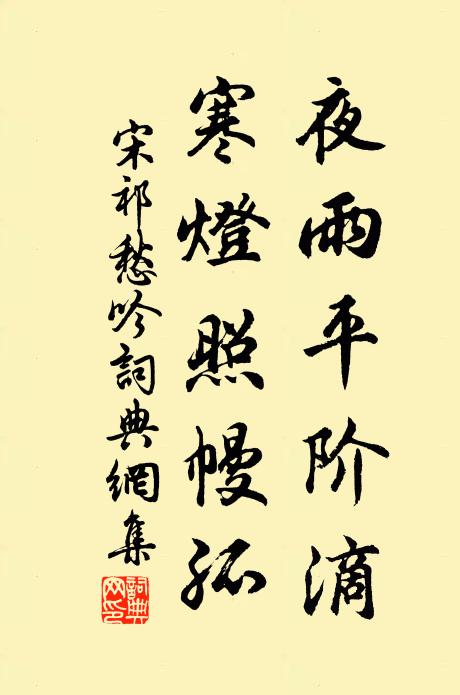 夜雨平阶滴
寒燈照幔孤
宋祁愁吟詞典網集
詞典網印